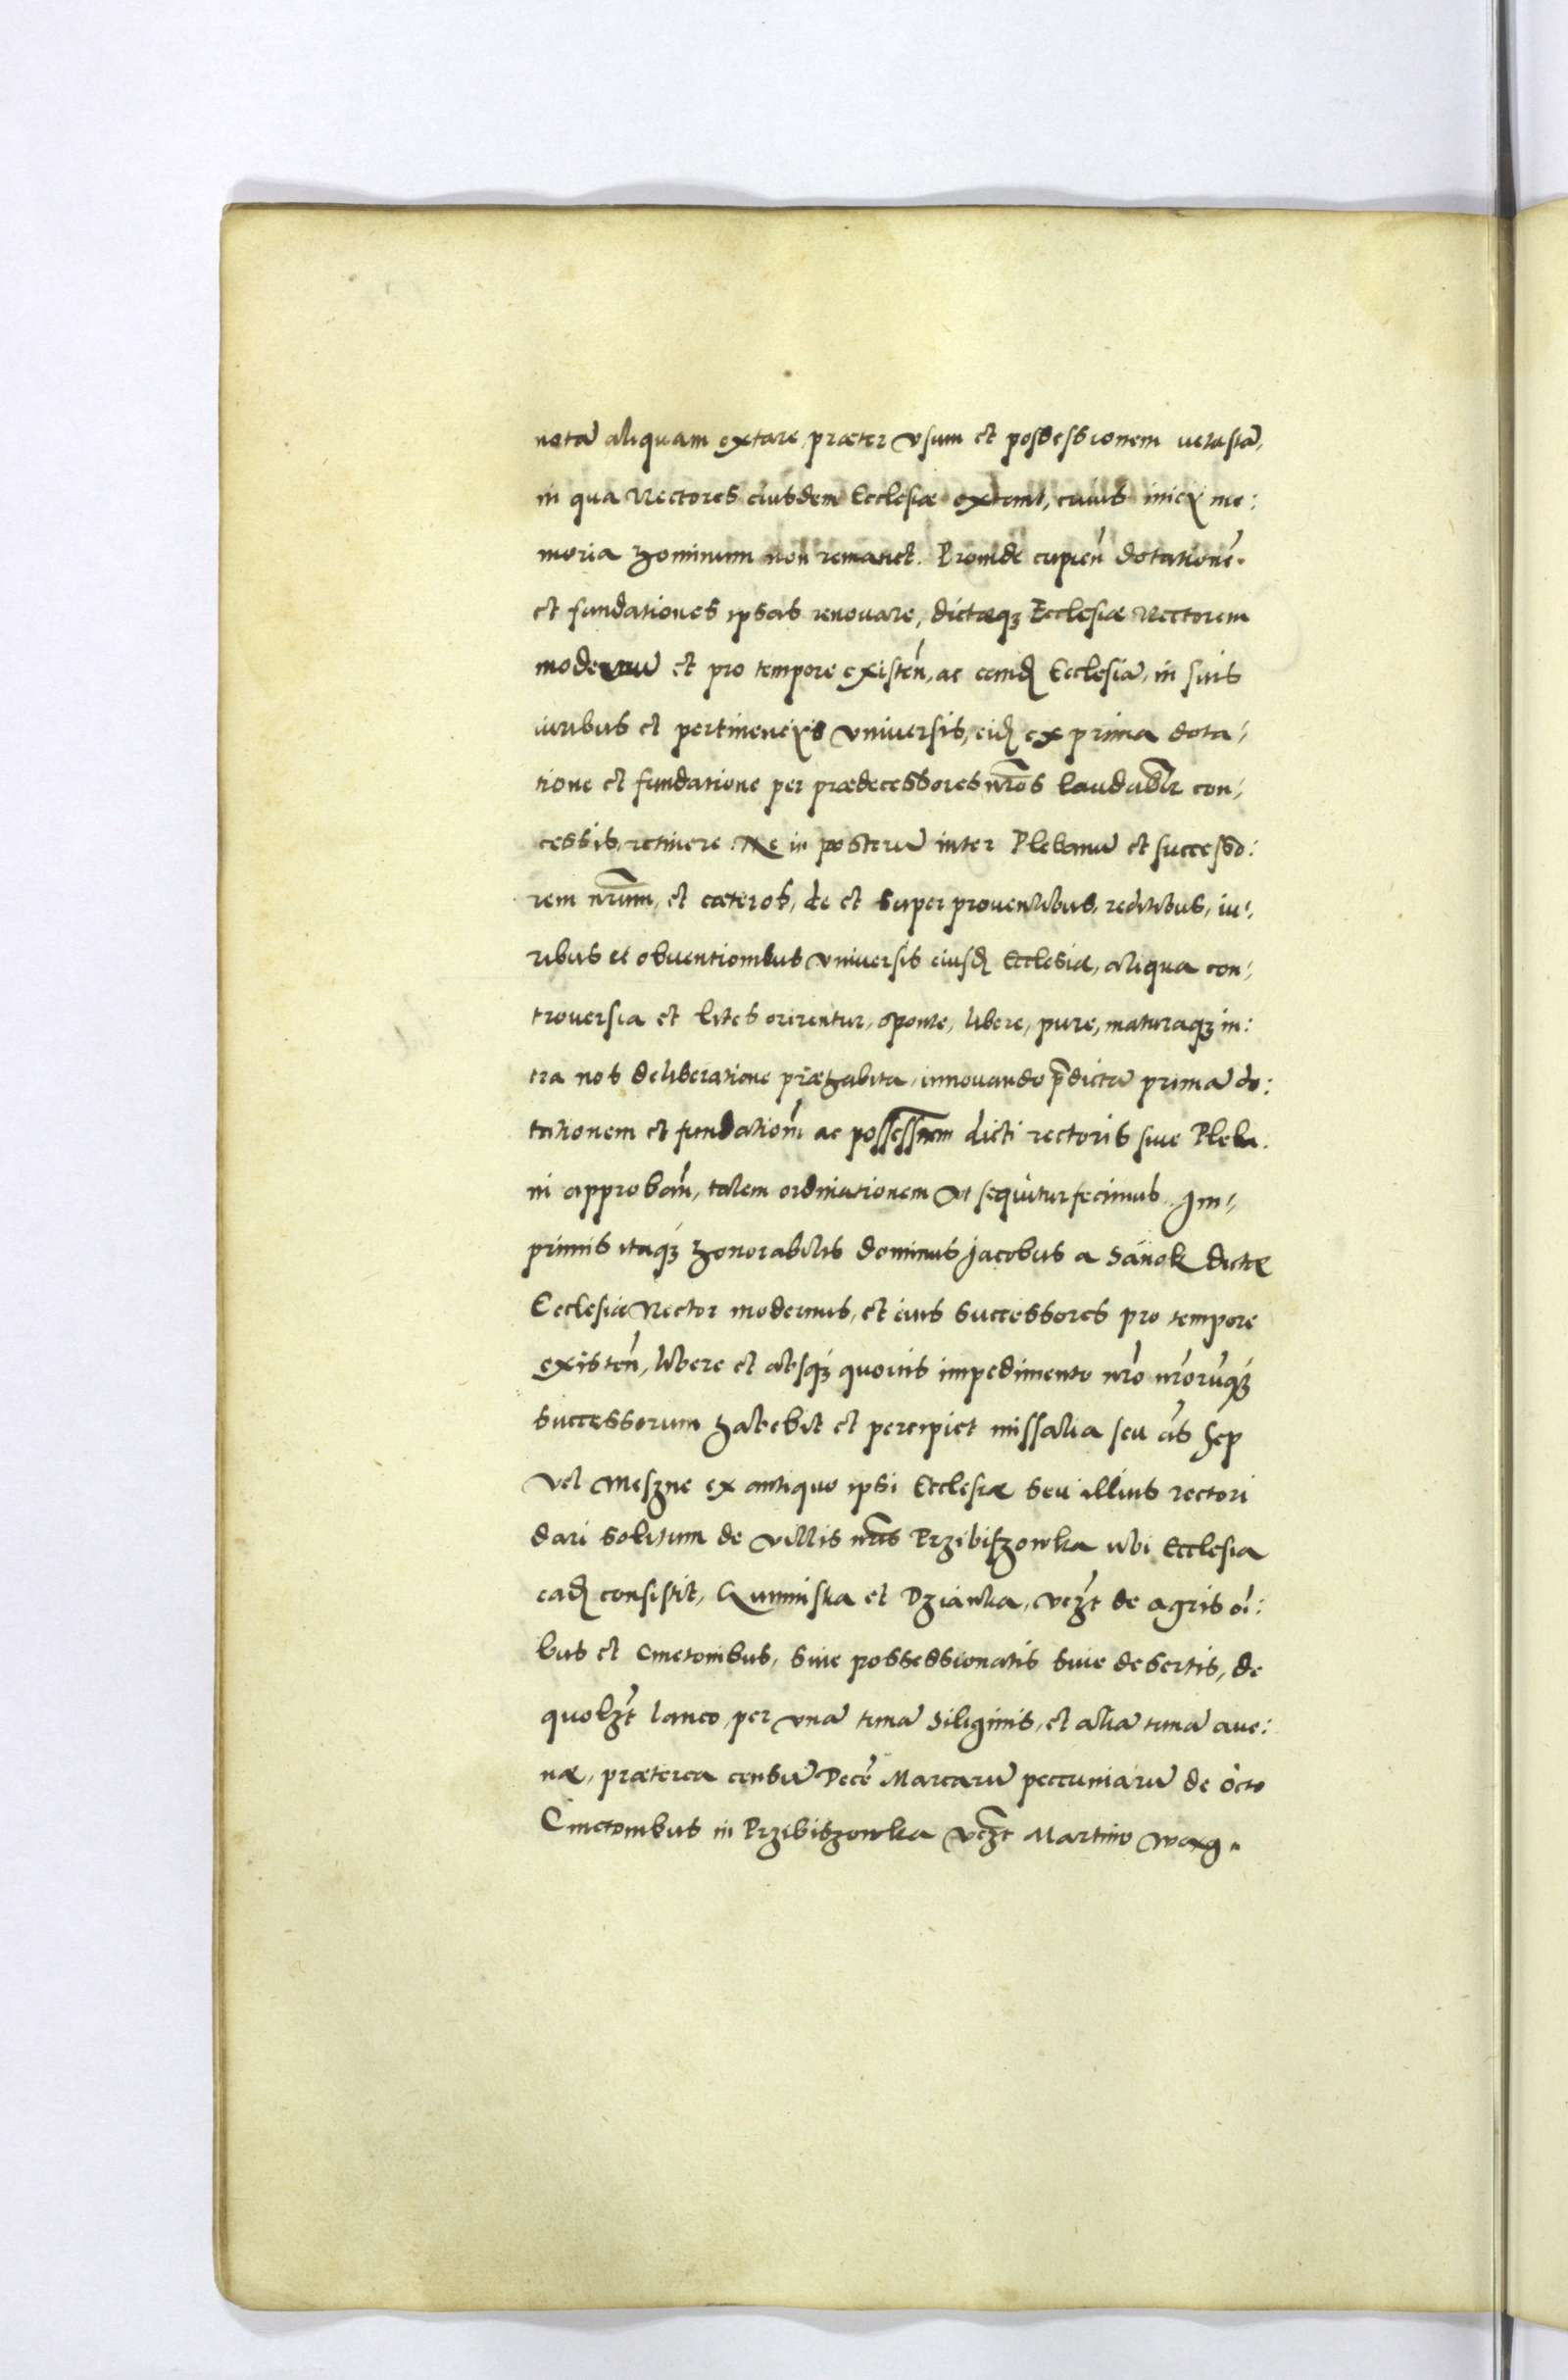 notã aliquam extare, præter vsum et possessionem uetustã,
in qua Rectores eiusdem Ecclesiæ extant, cuius me:
moria hominum non remanet. Proinde cupieñ dotationẽ
et fundationes ipsas renouare, dictæq3 Ecclesiæ Rectorem
modernũ et pro tempore existeñ, ac eand Ecclesiã, in suis
iuribus et pertinencijs vniuersis, eid ex prima dota-
tione et fundatione per prædecessores nr̃os laudabl̃r con-
cessis, retinere. Ne in posterũ inter Plebanũ et successo:
rem nr̃um, et cæteros, de et super prouentibus, reditibus, iu-
ribus et obuentionibus vniuersis eiusd Ecclesiæ, aliqua con-
trouersia et lites orirentur, sponte, libere, pure, maturaq3 in:
tra nos deliberatione præhabita, innouando p̃dictã primã do:
tationem et fundationẽ ac possessñem dicti rectoris siue Pleba-
ni approbañ, talem ordinationem vt sequitur fecimus. Im-
primis itaq3 honorabilis dominus Jacobus a Sanok dictæ
Ecclesiæ Rector modernus, et eius successores pro tempore
existeñ, libere et absq3 quouis impedimento nr̃o nr̃orũq3
successorum habebit et percipiet missalia seu als Sep
vel Meszne ex antiquo ipsi Ecclesiæ seu illius rectori
dari solitum de villis nr̃is Przibiszowka ubi Ecclesia
ead consistit, et vczt de agris oĩ:
bus et Cmetonibus, siue possessionatis siue desertis, de
quolzt laneo, per vnã tunã siliginis, et aliã tunã aue:
næ, præterea censũ Decẽ Marcarũ peccuniarũ de octo
Cmetonibus in Przibiszowka vczt Martino Wag-